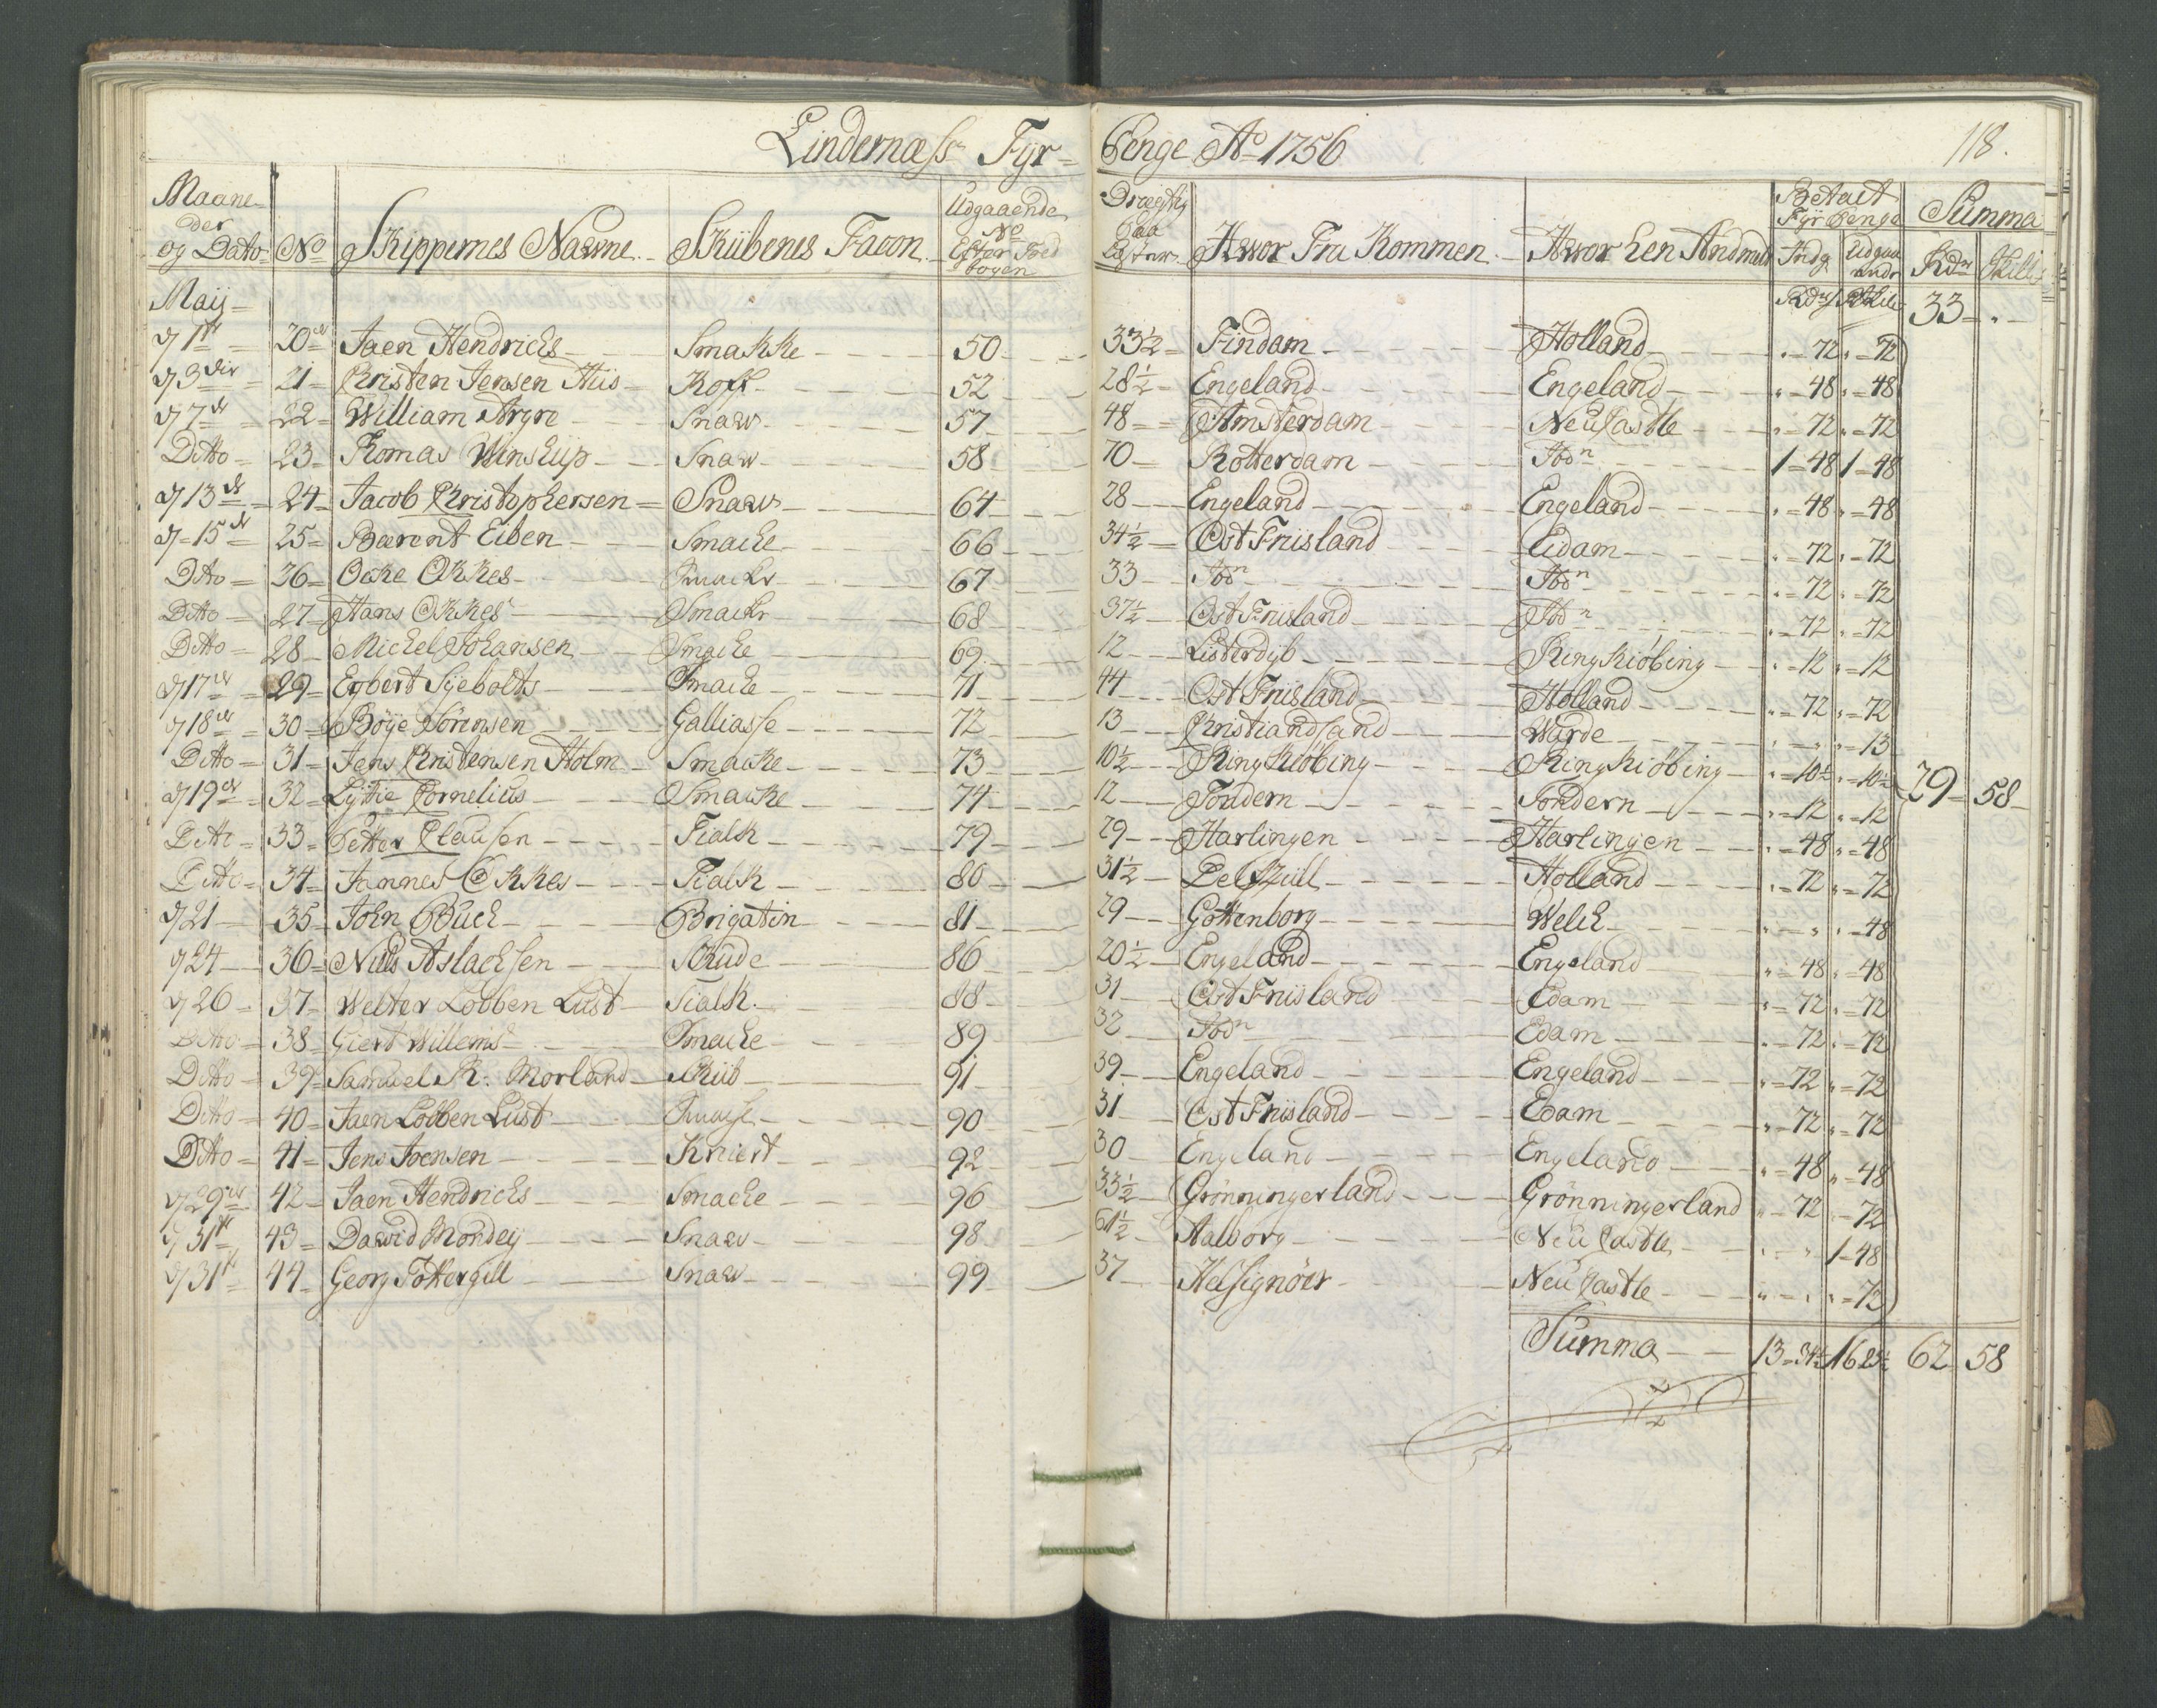 Lindernæss Fyr= Penge Ao 1756
118.
Maane
der
og Dato No Skippernes Nawne Skiibenes Facon Udgaaende No Efter Toldbogen Drægtig Paa Læster Hwor Fra Kommen Hwor hen Andmeldt Betalt Fyr Penge Indg Udgaaende Summa Rdr Skill
Maij 33 - „
d 1te 20de Jaen Hendrichs Smakke 50 33½ Findam Holland „ = 72 „ = 72
d 3die 21 Christen Jensen Hiis Koff 52 28½ Engeland Engeland „ = 48 „ = 48
d 7de 22 William Argre Snaw 57 48 Amsterdam Neu Castle „ = 72 „ = 72
Ditto 23 Thomas Winship Snaw 58 70 Rotterdam Ibdn 1 = 48 1 = 48
d 13de 24 Jacob Christophersen Snaw 64 28 Engeland Engeland „ = 48 „ = 48
d 15de 25 Barent Eiben Smacke 66 34½ Ost Friisland Eidam „ = 72 „ = 72
Ditto 26 Ocke Okkes Smacke 67 33 Ibdn Ibdn „ = 72 „ = 72
Ditto 27 Hans Okkes Smacke 68 37½ Ost Friisland Ibdn „ = 72 „ = 72
Ditto 28 Michel Johansen Smacke 69 12 Listerdyb Ring Kiøbing „ = 12 „ = 12
d 17de 29 Egbert Sijebolts Smacke 71 44 Ost Friisland Holland „ = 72 „ = 72
d 18de 30 Bøije Sørensen Galliasse 72 13 Christiandsand Warde „ = „ „ = 13
Ditto 31 Jens Christensen Holm Smacke 73 10½ Ring Kiøbing Ring Kiøbing „ = 10½ „ = 10½
d 19de 32 Lÿtie Cornelius Smacke 74 12 Tondern Tondern „ = 12 „ = 12 29 58
Ditto 33 Petter Clausen Tialk 79 29 Harlingen Harlingen „ = 48 „ = 48
Ditto 34 Jannes Okkes Tialk 80 31½ Delfziill Holland „ = 72 „ = 72
d 21 35 John Buch Brigatin 81 29 Gottenborg Welch „ „ „ = 48
d 24 36 Niels Aslachsen Skude 86 20½ Engeland Engeland „ = 48 „ = 48
d 26 37 Welter Lobben Lust Tialk 88 31 Ost Friisland Edam „ = 72 „ = 72
Ditto 38 Giert Willems Smacke 89 32 Ibdn Edam „ = 72 „ = 72
Ditto 39 Samuel R. Morland Skiib 91 39 Engeland Engeland „ = 72 „ = 72
Ditto 40 Jaen Lobben Lust 90 31 Ost Friisland Edam „ = 72 „ = 72
Ditto 41 Jens Joensen Kreiert 92 30 Engeland Engeland „ = 48 „ = 48
d 29de 42 Jaen Hendrichs Smacke 96 33½ Grønningerland Grønningerland „ = 72 „ = 72
d 31te 43 Dawid Mondeÿ Snaw 98 61½ Aalborg Neu Castle „ = „ 1 = 48
d 31te 44 Georg Tottergill Snaw 99 37 Helsignøer Neu Castle „ = „ „ = 72
Summa 13 = 34½ 16 23½ 62 58